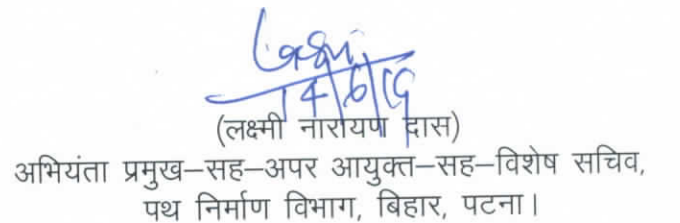 Lakshmi
(लक्ष्मी नारायण दास)
अभियंता प्रमुख–सह–अपर आयुक्त–सह–विशेष सचिव,
पथ निर्माण विभाग, बिहार, पटना।